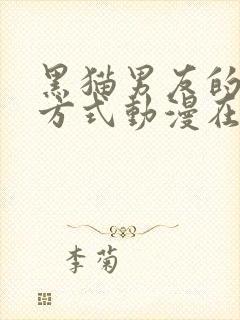 黑猫男友的
方式動漫在
李菊